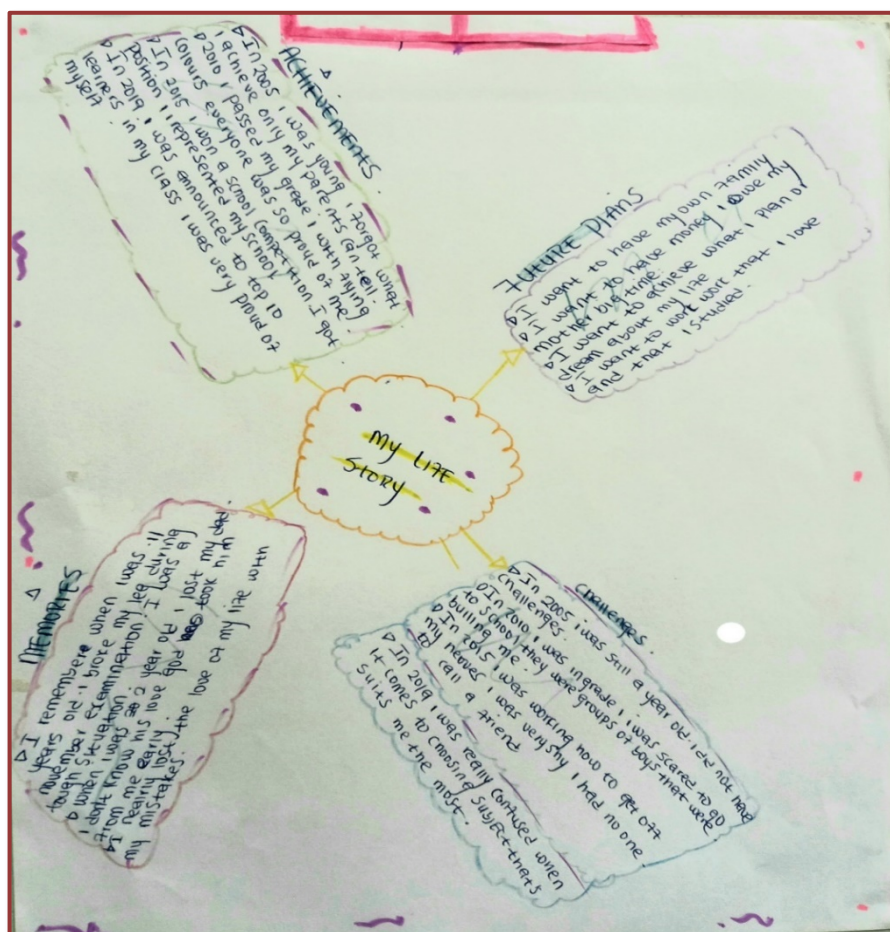 MY LIFE
STORY
ACHIEVEMENTS.
▷ In 2005 i was young i forgot what
i achieve only my parents can tell.
▷ 2010 i passed my grade 1 with flying
colours everyone was so proud of me
▷ In 2015 i won a school competition I got
position 1 represented my school
▷ In 2019 i was announced to top 10
learners in my class i was very proud of
myself
FUTURE PLANS
▷ I want to have my own family
▷ I want to have money I owe my
mother big time.
▷ I want to achieve what i plan or
dream about my life
▷ I want to work work that I love
and that i studied.
MEMORIES
▷ I remember when I was 11
years old i broke my leg during
november examination I was a
tough situation.
▷ when I was 2 year old i lost my dad
I don't know his love god took him
from me early.
▷ I nearly lost the love of my life with
my mistakes.
Challenges.
▷ In 2005 i was still a year old i did not have
challenges.
▷ In 2010 i was in grade 1 i was scared to go
to school they were groups of boys that were
bulling me
▷ In 2015 i was working how to get off
my nerves i was very shy i had no one
to call a friend
▷ In 2019 i was really confused when
it comes to choosing subject that's
suits me the most.